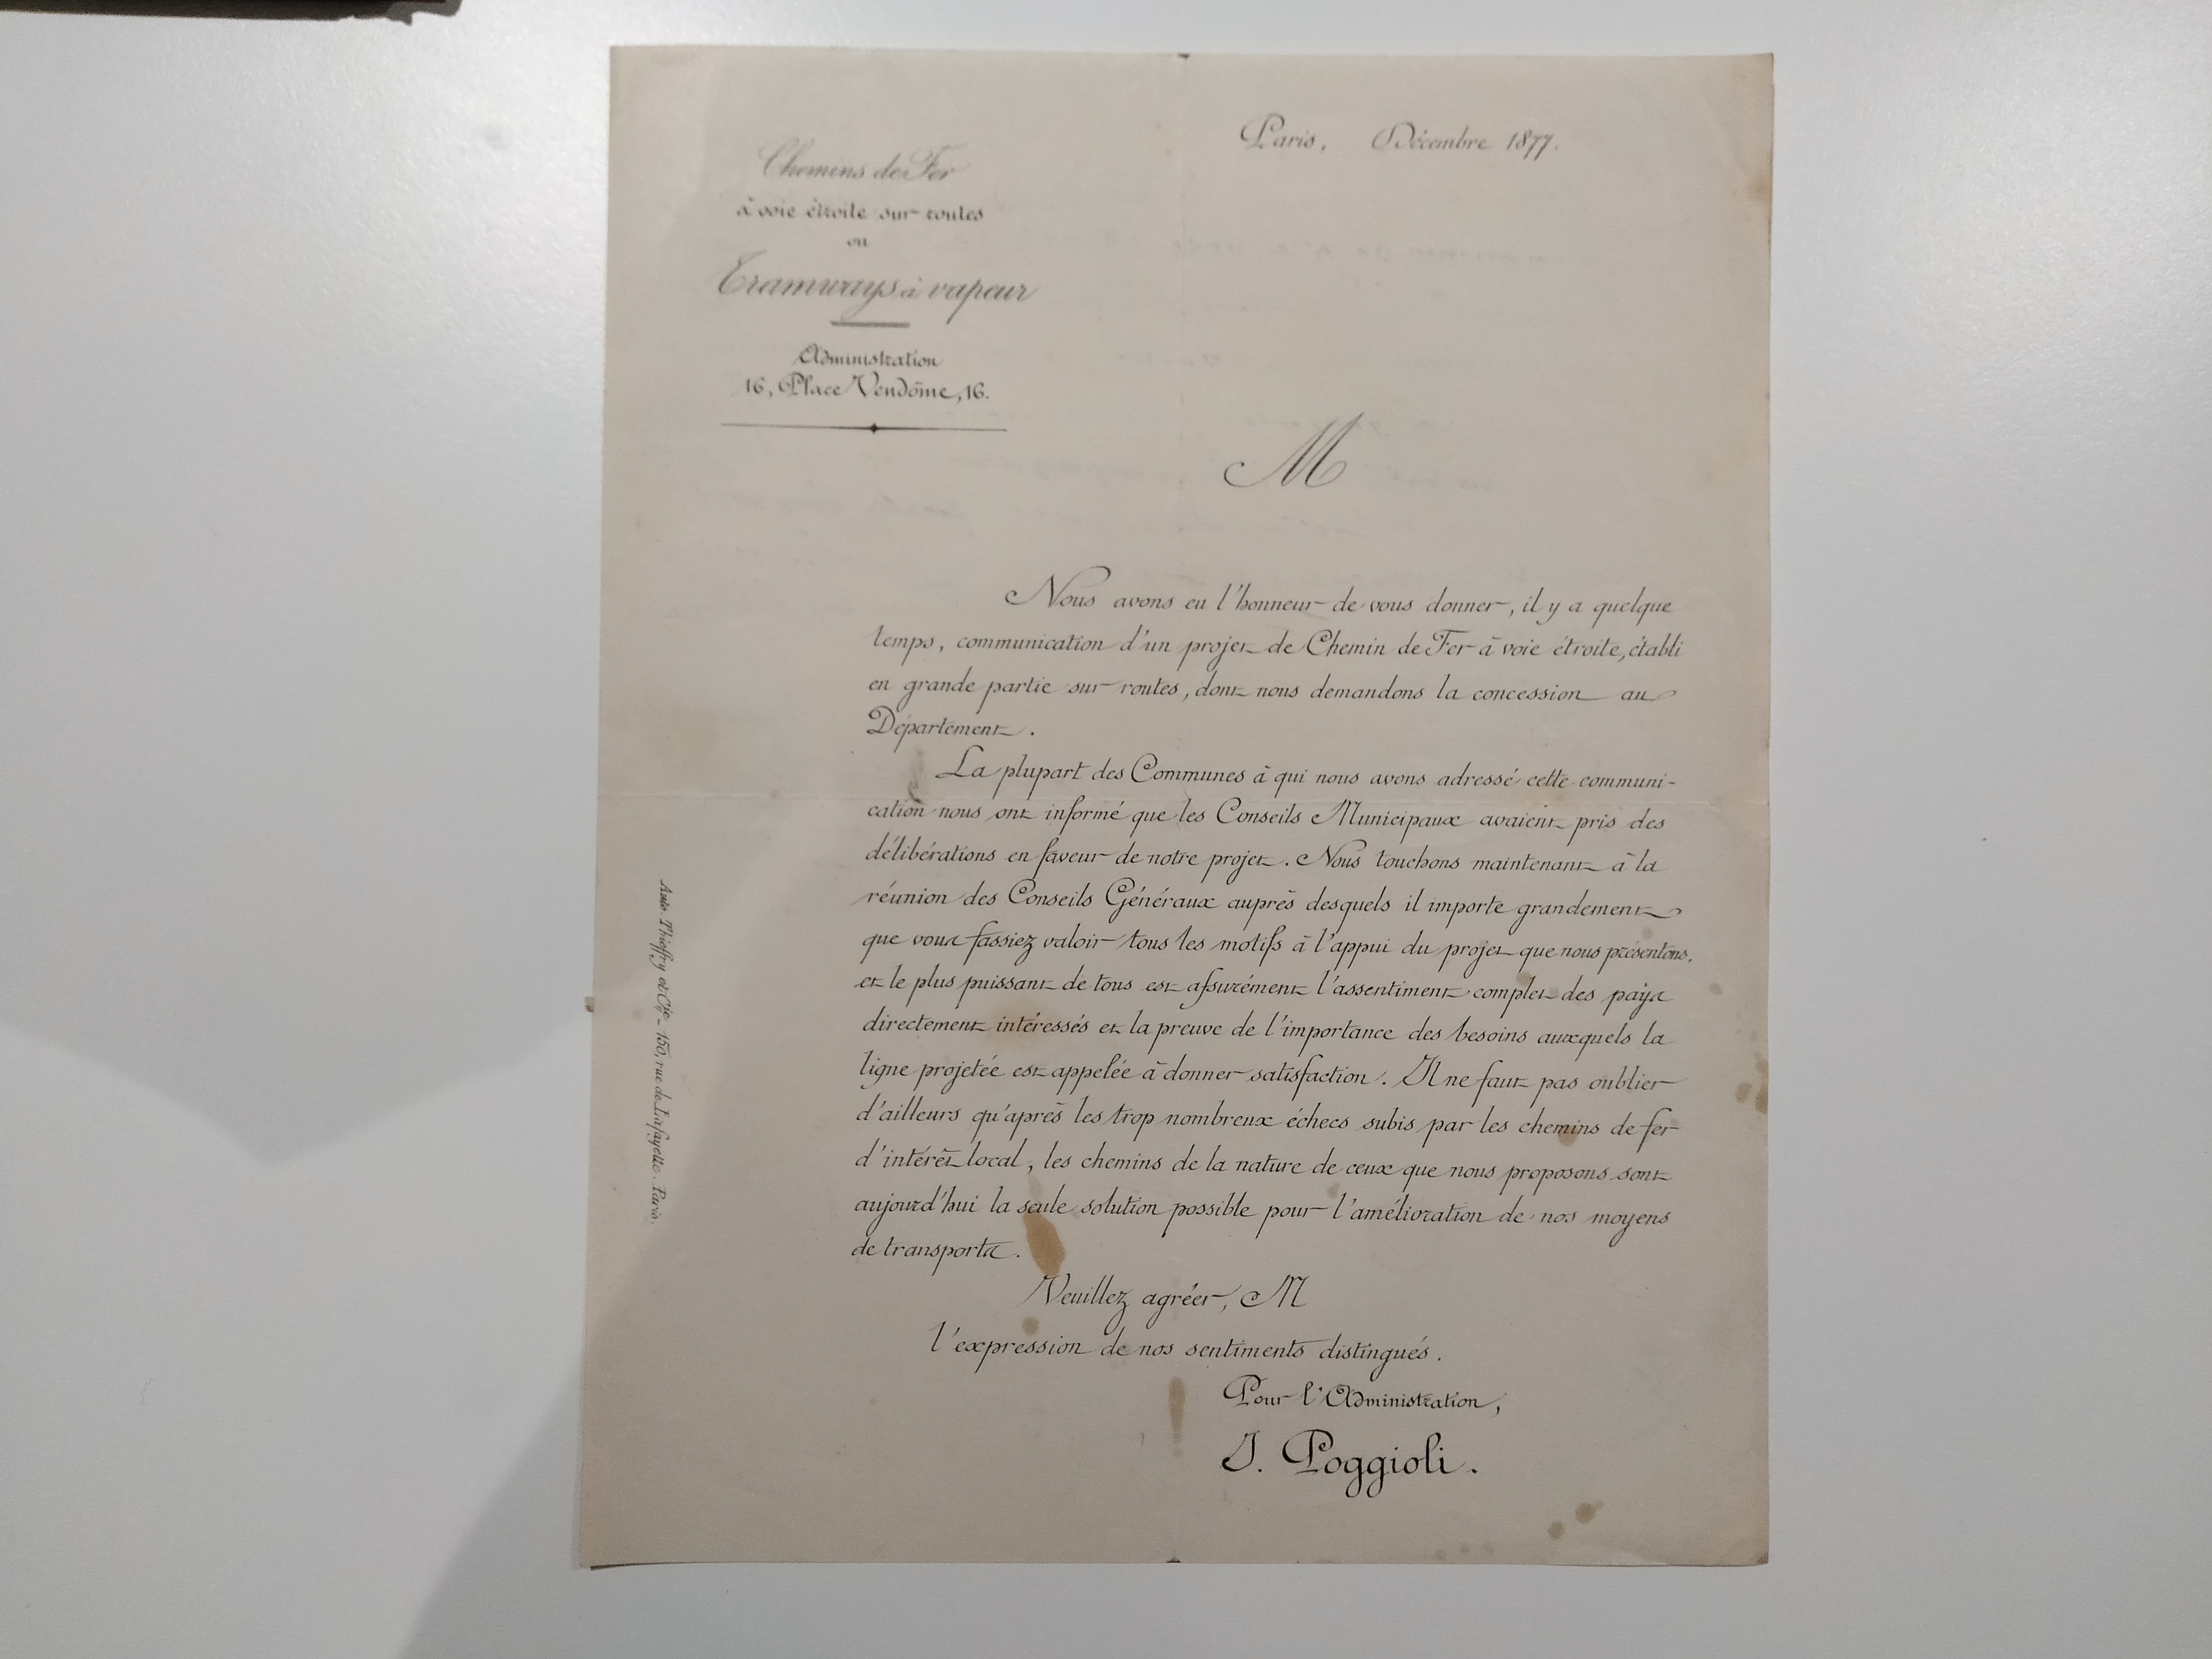 Chemins de Fer
à voie étroite sur routes
ou
Tramways à vapeur
Administration
16, Place Vendôme, 16.
Paris, Décembre 1877.
M
Nous avons eu l'honneur de vous donner, il y a quelque
temps, communication d'un projet de Chemin de Fer à voie étroite, établi
en grande partie sur routes, dont nous demandons la concession au
Département.
La plupart des Communes à qui nous avons adressé cette communi-
cation nous ont informé que les Conseils Municipaux avaient pris des
délibérations en faveur de notre projet. Nous touchons maintenant à la
réunion des Conseils Généraux auprès desquels il importe grandement
que vous fassiez valoir tous les motifs à l'appui du projet que nous présentons,
et le plus puissant de tous est assurément l'assentiment complet des pays
directement intéressés et la preuve de l'importance des besoins auxquels la
ligne projetée est appelée à donner satisfaction. Il ne faut pas oublier
d'ailleurs qu'après les trop nombreux échecs subis par les chemins de fer
d'intérêt local, les chemins de la nature de ceux que nous proposons sont
aujourd'hui la seule solution possible pour l'amélioration de nos moyens
de transports.
Veuillez agréer, M
l'expression de nos sentiments distingués.
Pour l'Administration,
J. Poggioli.
Auto. Thieffry et Cie - 150, rue de Lafayette. Paris.